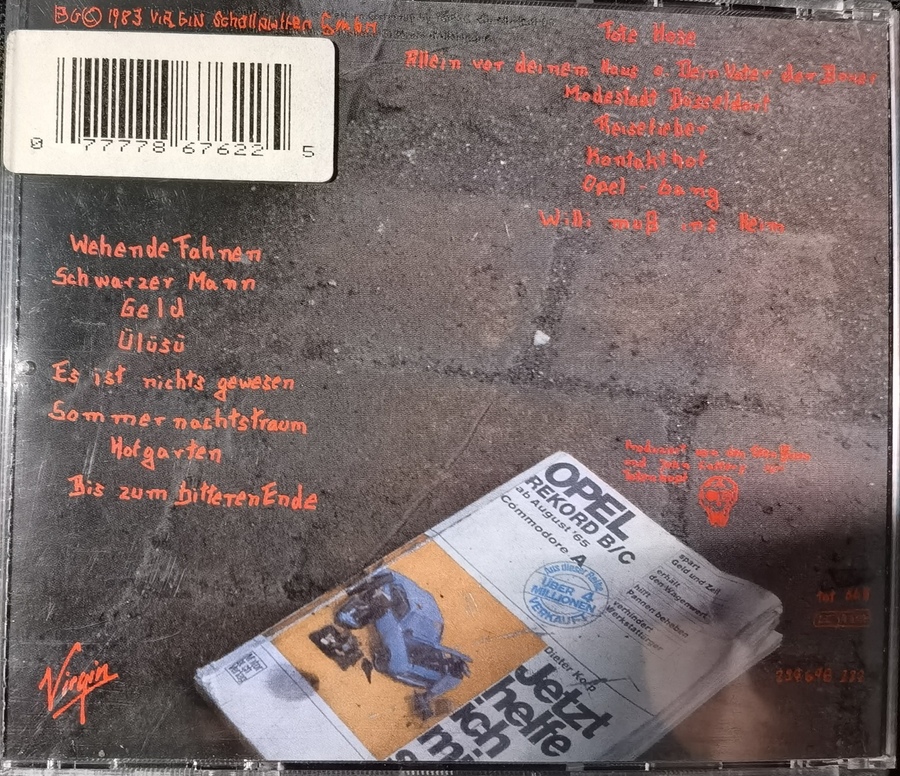 ℗© 1983 VIRGIN Schallplatten GmbH
0 77778 67622 5
Tote Hose
Allein vor deinem Haus o. Dein Vater der Bauer
Modestadt Düsseldorf
Reisefieber
Kontakthof
Opel - Gang
Willi muß ins Heim
Wehende Fahnen
Schwarzer Mann
Geld
Ülüsü
Es ist nichts gewesen
Sommernachtstraum
Hofgarten
Bis zum bitteren Ende
und
OPEL
REKORD B/C
ab August '65
Commodore A
Aus dieser Reihe
ÜBER 4
MILLIONEN
VERKAUFT
spart
Geld und Zeit
erhält
den Wagenwert
hilft
Pannen beheben
verhindert
Werkstattärger
Dieter Korp
Jetzt
helfe
ich
mi
Virgin
257 698 222